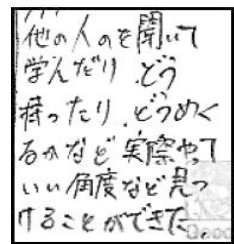 他の人のを聞いて
学んだり、どう
持ったり、どうめく
るかなど実際やって
いい角度など見つ
けることができた。